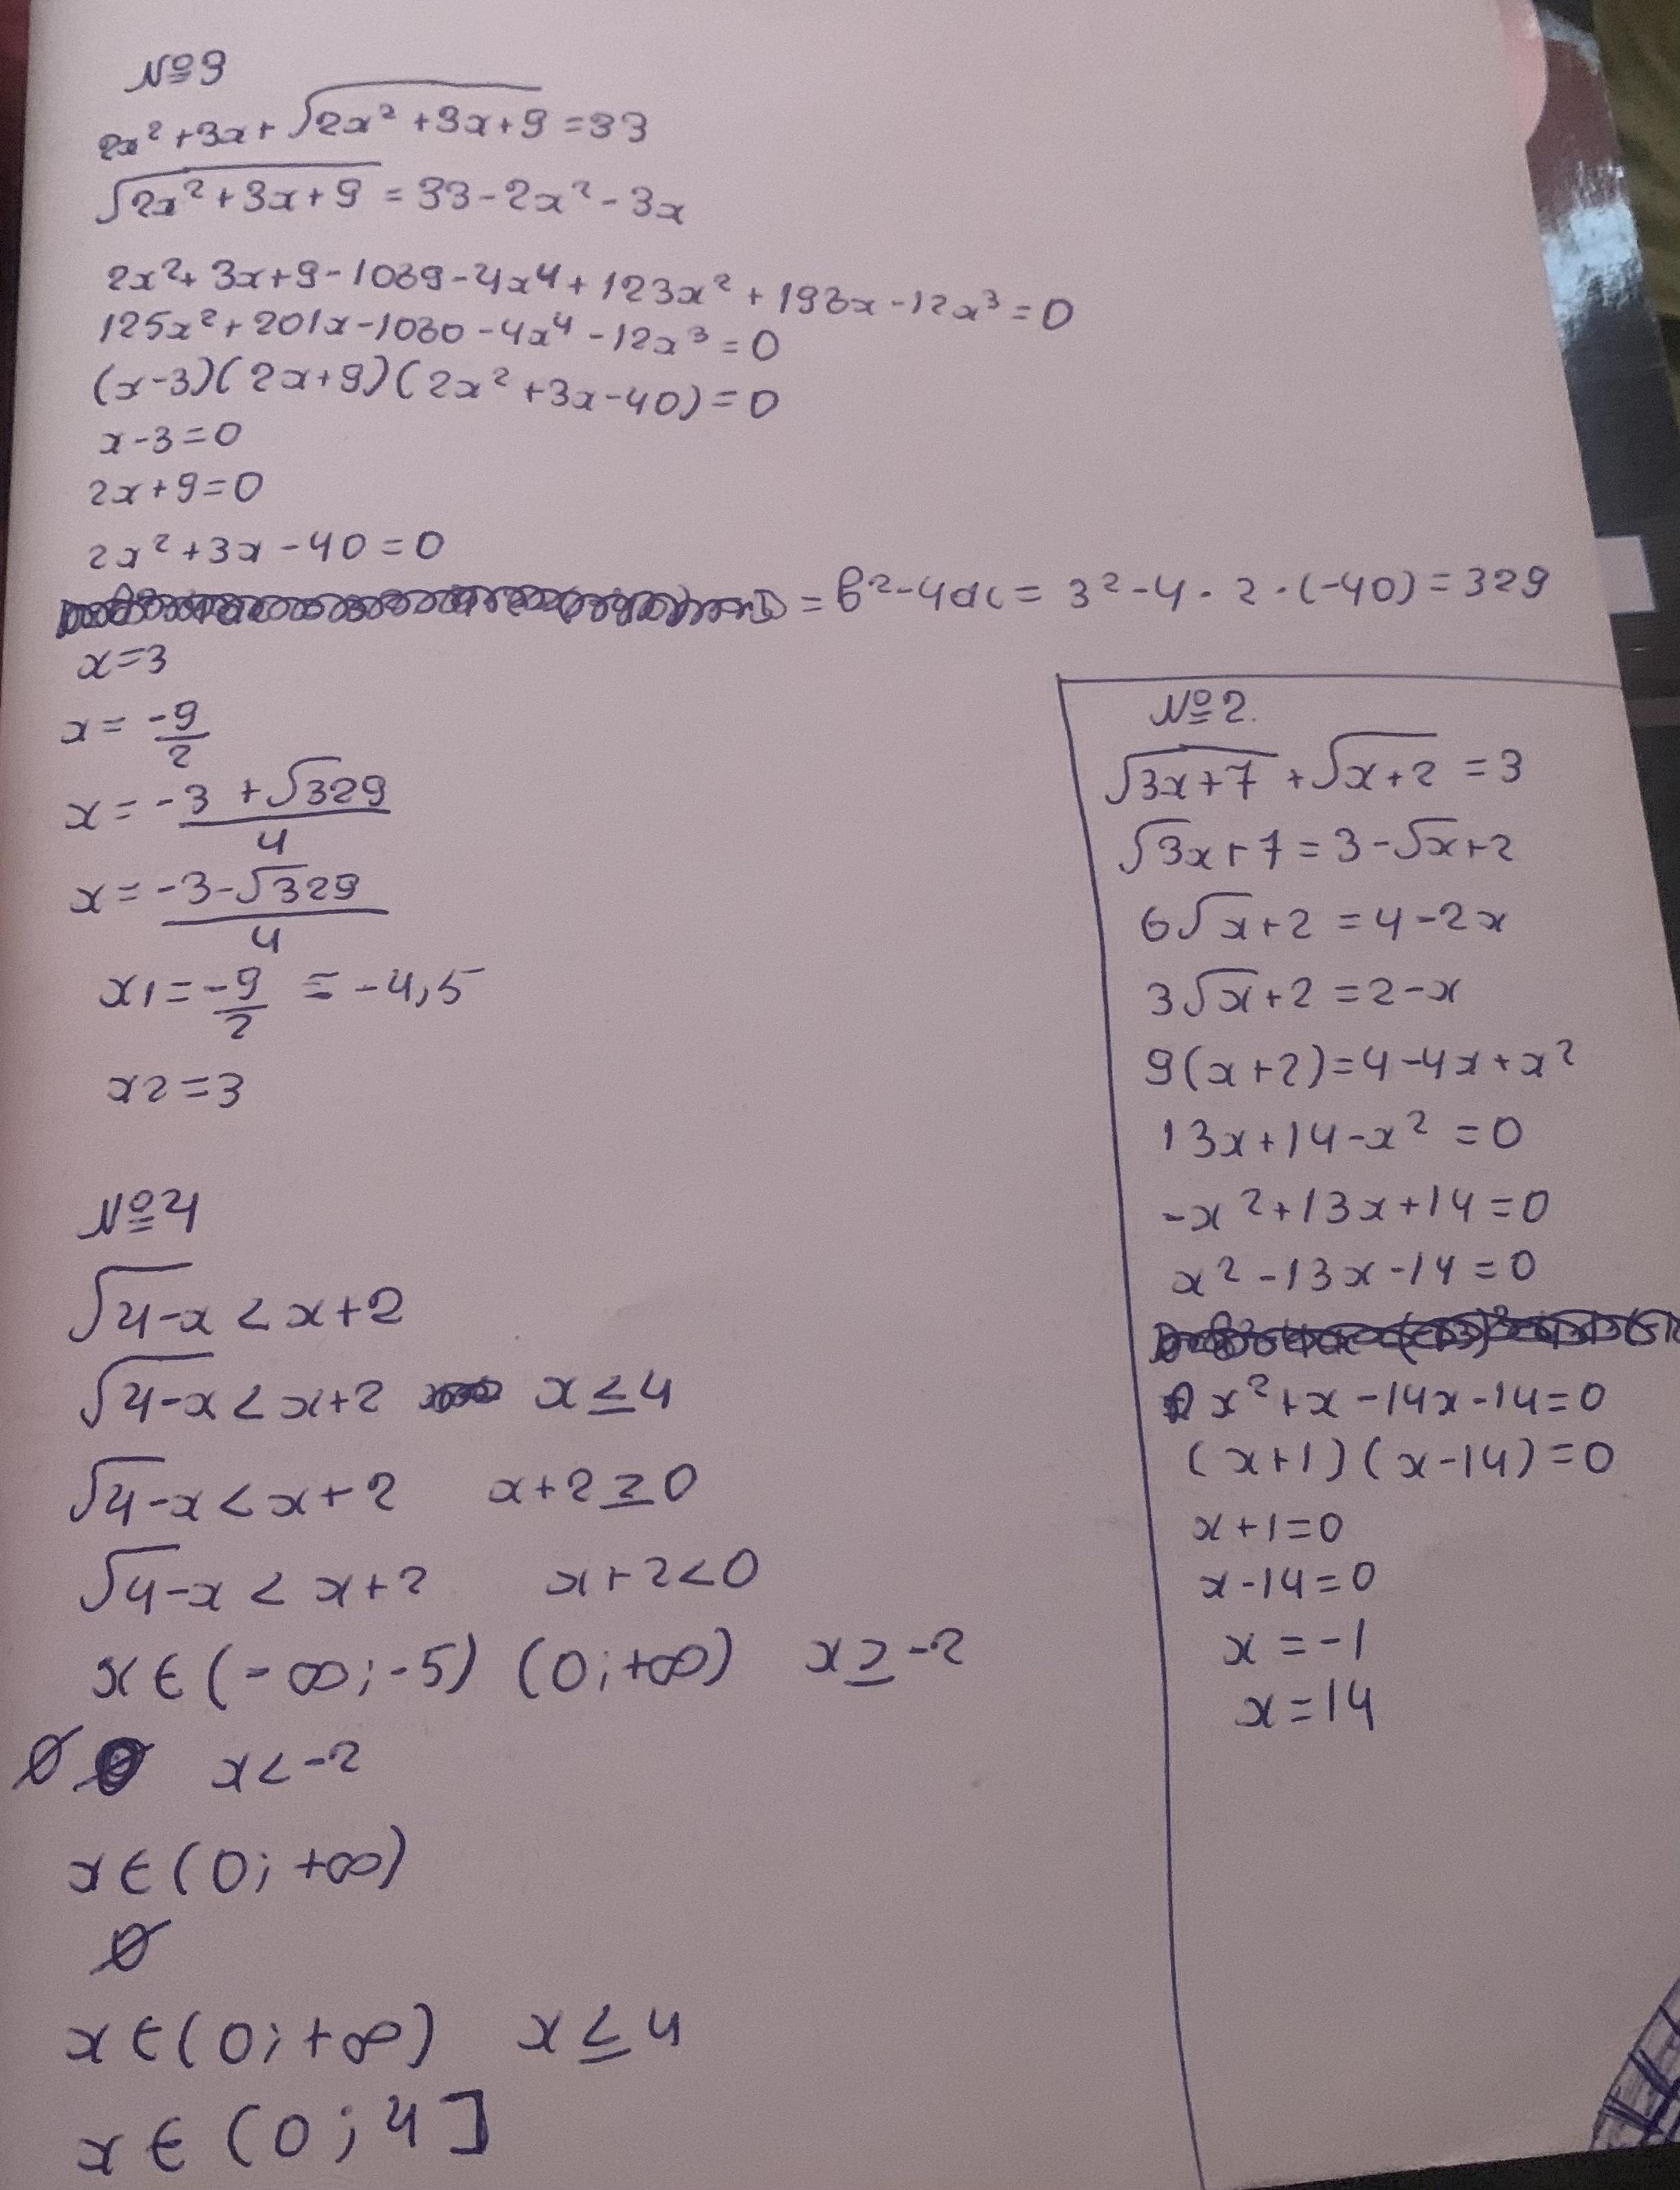 №9
2x² + 3x + √(2x² + 3x + 9) = 33
√(2x² + 3x + 9) = 33 - 2x² - 3x
2x² + 3x + 9 - 1089 - 4x⁴ + 123x² + 198x - 12x³ = 0
125x² + 201x - 1080 - 4x⁴ - 12x³ = 0
(x-3)(2x+9)(2x² + 3x - 40) = 0
x - 3 = 0
2x + 9 = 0
2x² + 3x - 40 = 0
D = b² - 4ac = 3² - 4 · 2 · (-40) = 329
x = 3
x = -9/2
x = (-3 + √329)/4
x = (-3 - √329)/4
x1 = -9/2 = -4,5
x2 = 3
№4
√(4-x) < x + 2
√(4-x) < x + 2 x ≤ 4
√(4-x) < x + 2 x + 2 ≥ 0
√(4-x) < x + 2 x + 2 < 0
x ∈ (-∞; -5) (0; +∞) x ≥ -2
∅ x < -2
x ∈ (0; +∞)
∅
x ∈ (0; +∞) x ≤ 4
x ∈ (0; 4]
№2.
√(3x+7) + √(x+2) = 3
√3x+7 = 3 - √x+2
6√x+2 = 4 - 2x
3√x+2 = 2 - x
9(x+2) = 4 - 4x + x²
13x + 14 - x² = 0
-x² + 13x + 14 = 0
x² - 13x - 14 = 0
x² + x - 14x - 14 = 0
(x+1)(x-14) = 0
x + 1 = 0
x - 14 = 0
x = -1
x = 14